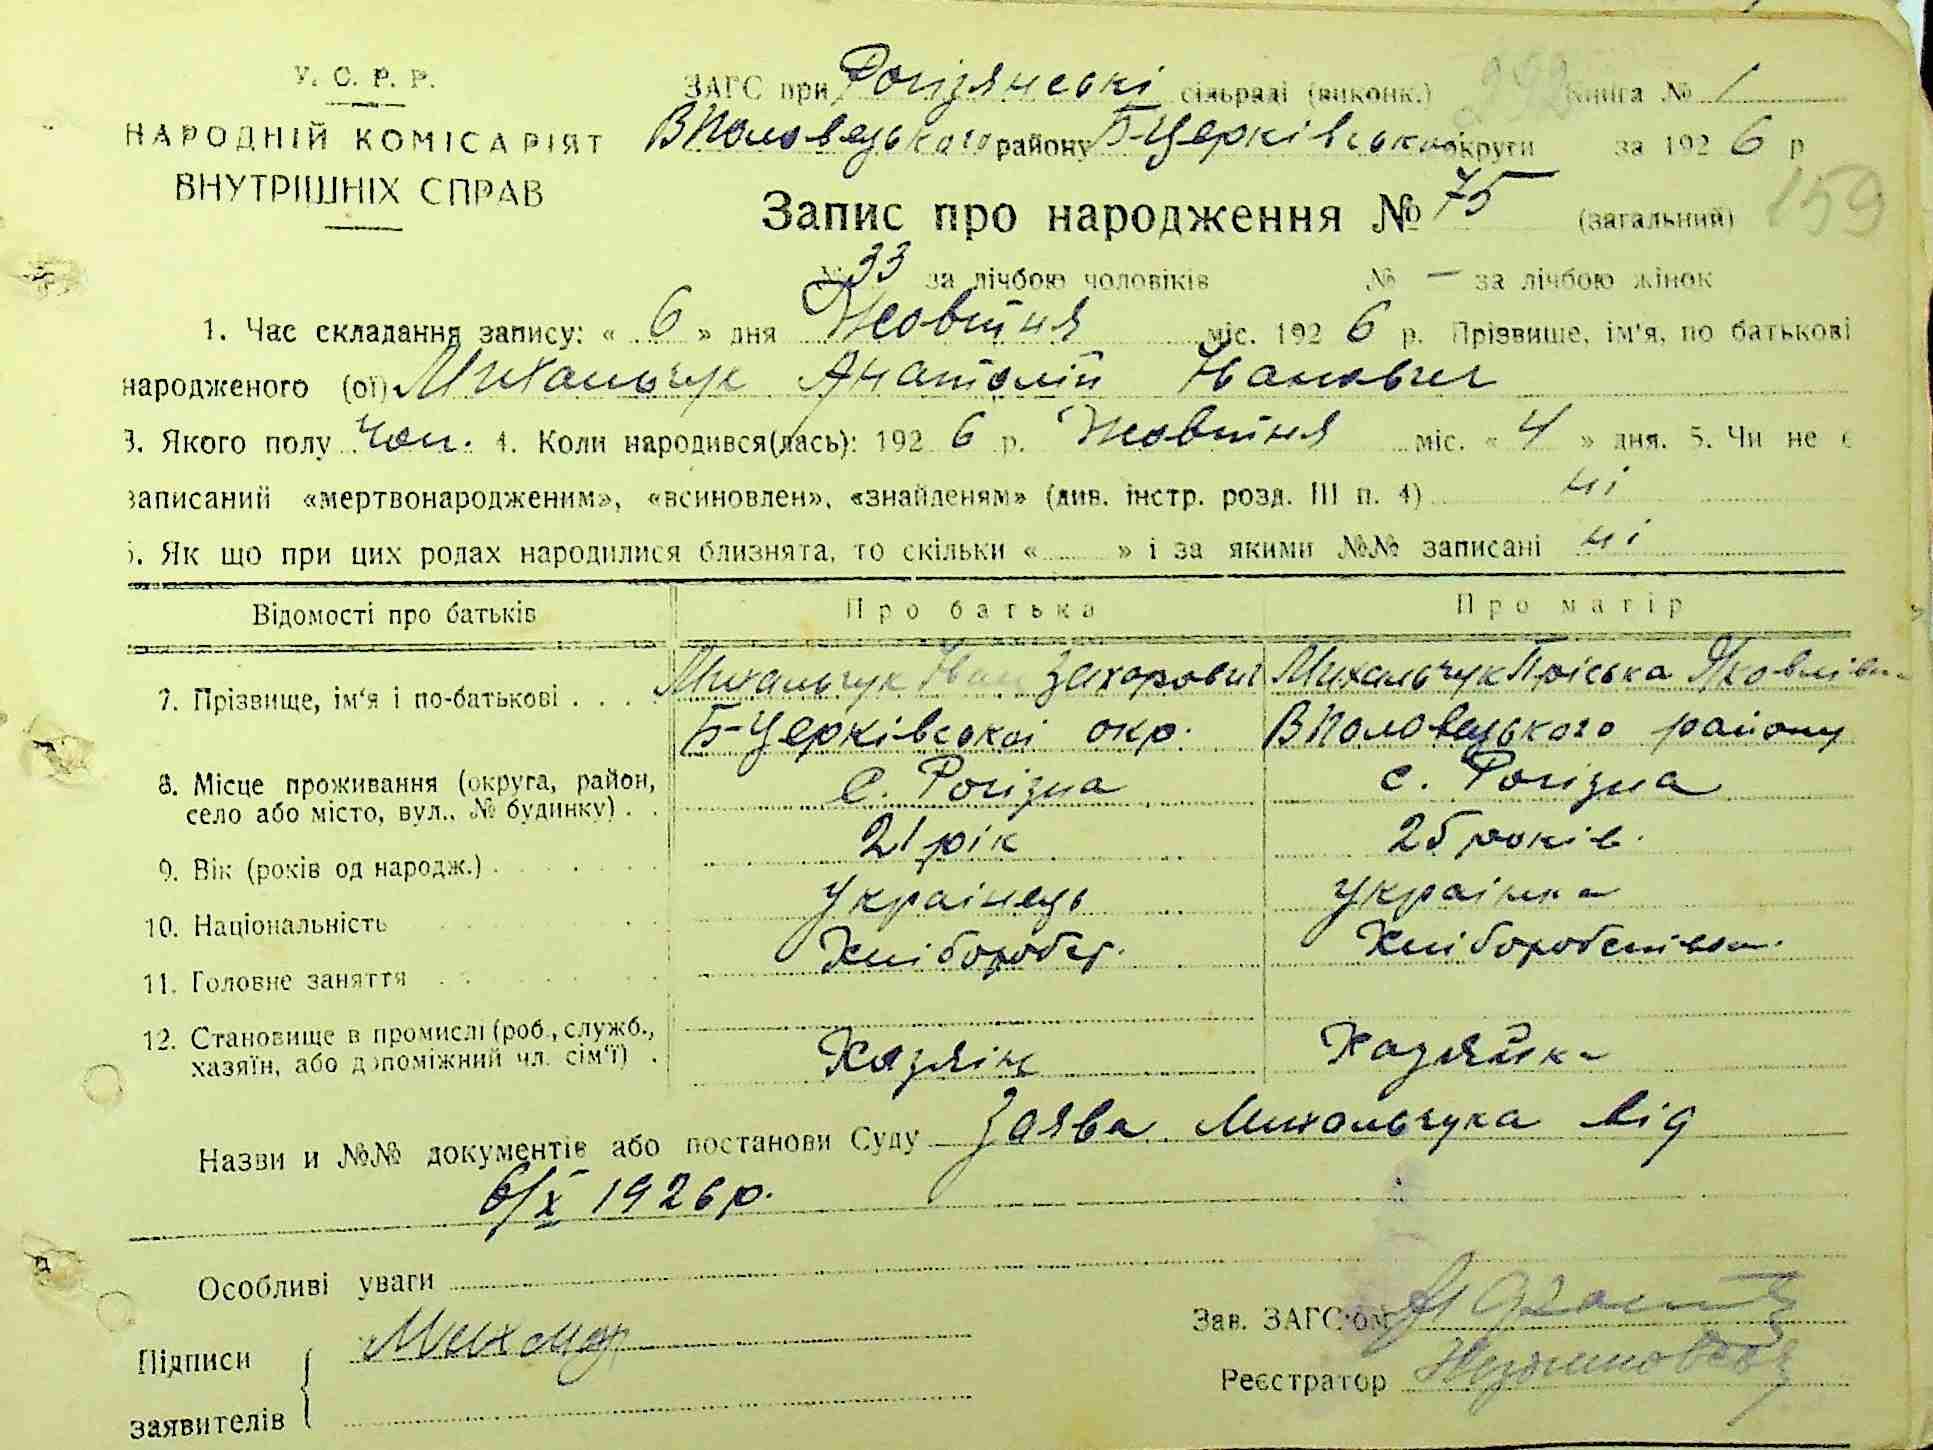 У. С. Р. Р.
НАРОДНІЙ КОМІСАРІЯТ
ВНУТРІШНІХ СПРАВ
ЗАГС при Рогізянські сільраді (виконк.) Книга № 1
ВПоловецького району Б-Церківської округи за 1926 р
Запис про народження № 75 (загальний) 159
№ 33 за лічбою чоловіків № — за лічбою жінок
1. Час складання запису: « 6 » дня Жовтня міс. 1926 р. Прізвище, ім'я, по батькові
народженого (ої) Михальчук Анатолій Іванович
3. Якого полу Чол. 4. Коли народився(лась): 1926 р. Жовтня міс. « 4 » дня. 5. Чи не є
записаний «мертвонародженим», «всиновлен», «знайденям» (див. інстр. розд. III п. 4) ні
6. Як що при цих родах народилися близнята, то скільки « » і за якими №№ записані ні
Відомості про батьків Про батька Про матір
7. Прізвище, ім'я і по-батькові . . . . Михальчук Іван Захарович Михальчук Пріська Яковлівн
Б-Церківської окр. ВПоловецького району
8. Місце проживання (округа, район,
село або місто, вул., № будинку) . . с. Рогізна с. Рогізна
9. Вік (років од народж.) 21 рік 25 років.
10. Національність Українець Українка
11. Головне заняття Хлібороб Хліборобст
12. Становище в промислі (роб., служб.,
хазяїн, або допоміжний чл. сім'ї) . Хазяїн Хазяйка
Назви и №№ документів або постанови Суду Заява Михальчука від
6/X 1926 р.
Особливі уваги
Зав. ЗАГС'ом
Підписи
Реєстратор
заявителів